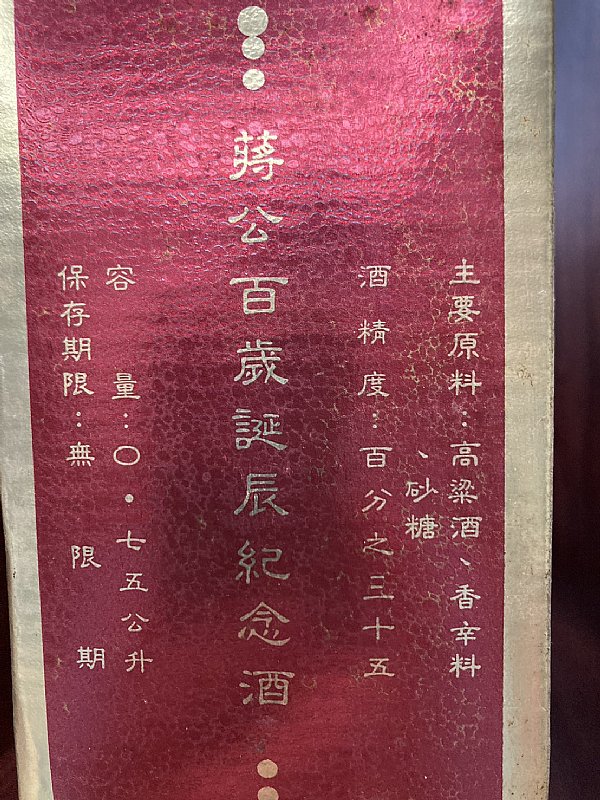 主要原料：高粱酒、香辛料
、砂糖
酒精度：百分之三十五
蔣公百歲誕辰紀念酒
容量：〇．七五公升
保存期限：無限期